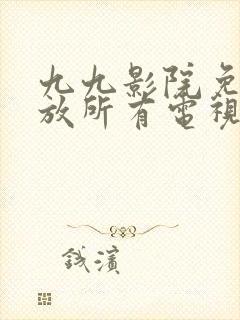 九九影院免
放所有電視
錢濱